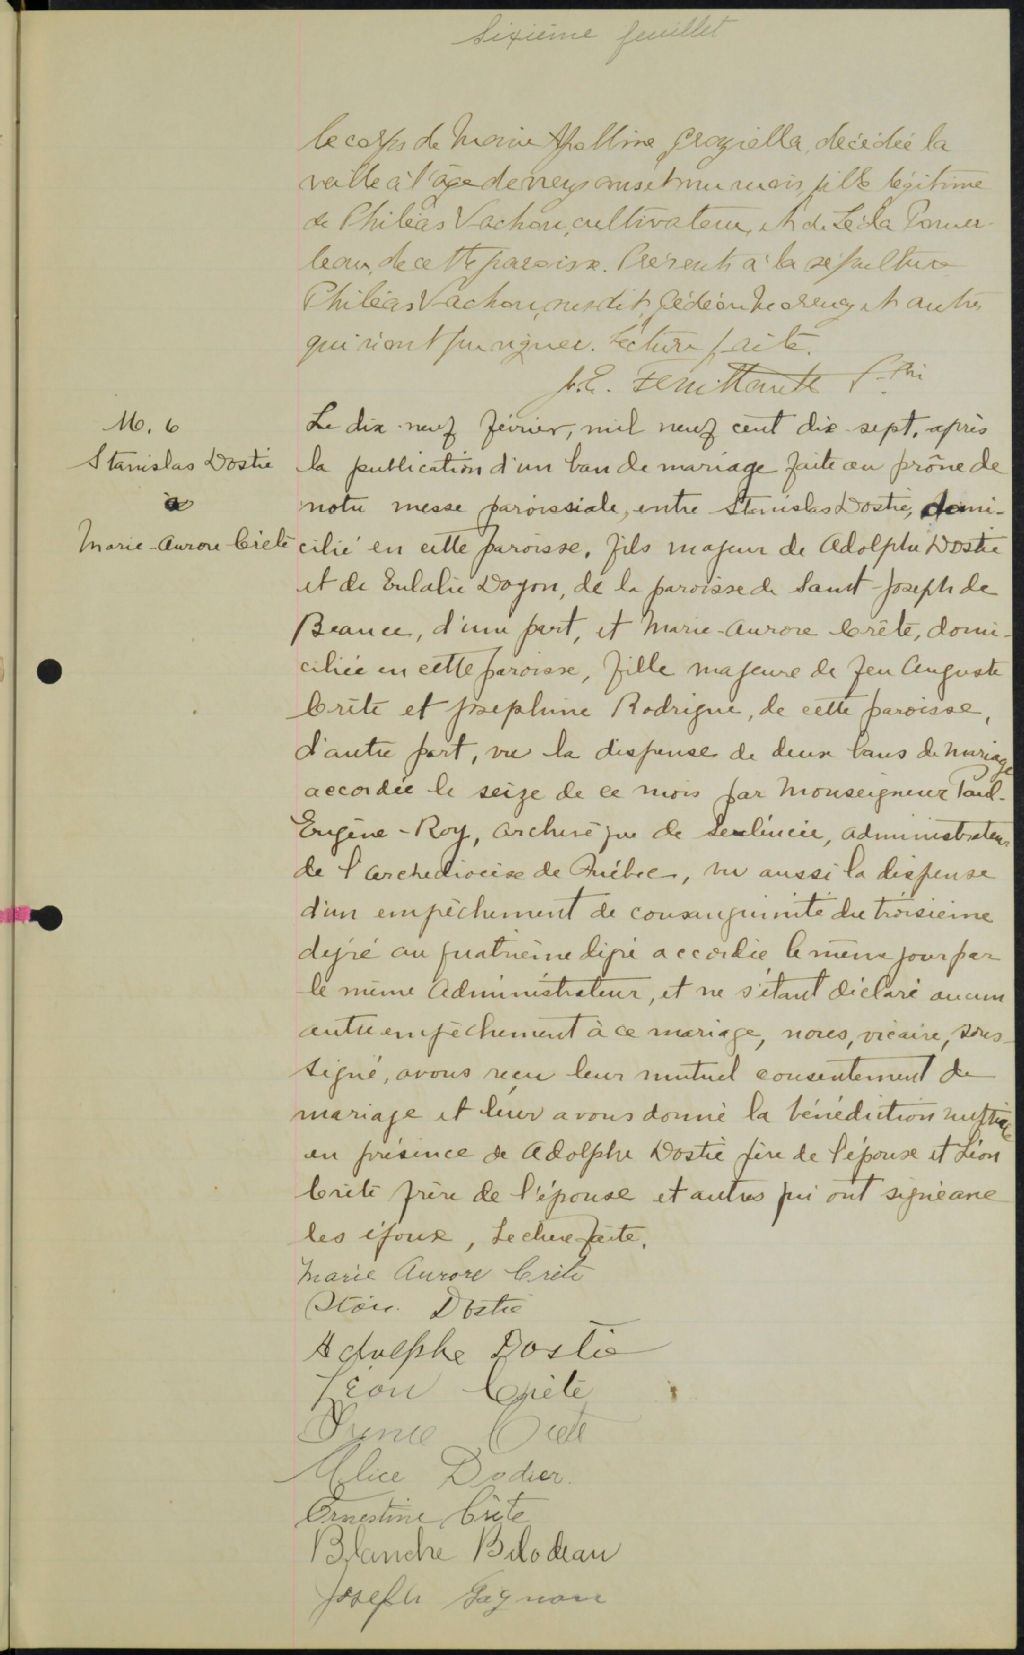 Sixième feuillet
le corps de Marie Apolline Graziella, décédée la
veille à l'âge de onze mois, fille légitime
de Philéas Vachon, cultivateur, et de Léda Pomer-
leau, de cette paroisse. Présents à la sépulture
Philéas Vachon, susdit, Gédéon et autres
qui n'ont pu signer. Lecture faite.
J. E. Feuiltault Ptre
M. 6
Stanislas Dostie
&
Marie-Aurore Crête
Le dix-neuf février, mil neuf cent dix-sept, après
la publication d'un ban de mariage faite au prône de
notre messe paroissiale, entre Stanislas Dostie, domi-
cilié en cette paroisse, fils majeur de Adolphe Dostie
et de Eulalie Doyon, de la paroisse de Saint-Joseph de
Beauce, d'une part, et Marie-Aurore Crête, domi-
ciliée en cette paroisse, fille majeure de feu Auguste
Crête et Joséphine Rodrigue, de cette paroisse,
d'autre part, vu la dispense de deux bans de mariage
accordée le seize de ce mois par Monseigneur Paul-
Eugène-Roy, archevêque de Séleucie, administrateur
de l'archidiocèse de Québec, vu aussi la dispense
d'un empêchement de consanguinité du troisième
degré au quatrième degré accordée le même jour par
le même Administrateur, et ne s'étant déclaré aucun
autre empêchement à ce mariage, nous, vicaire, sous-
signé, avons reçu leur mutuel consentement de
mariage et leur avons donné la bénédiction nuptiale
en présence de Adolphe Dostie père de l'époux et Léon
Crête frère de l'épouse et autres qui ont signé avec
les époux, Lecture faite.
Marie Aurore Crête
Stan. Dostie
Adolphe Dostie
Léon Crête
Crête
Alice Dodier.
Ernestine Crête
Blanche Bilodeau
Joseph Gagnon